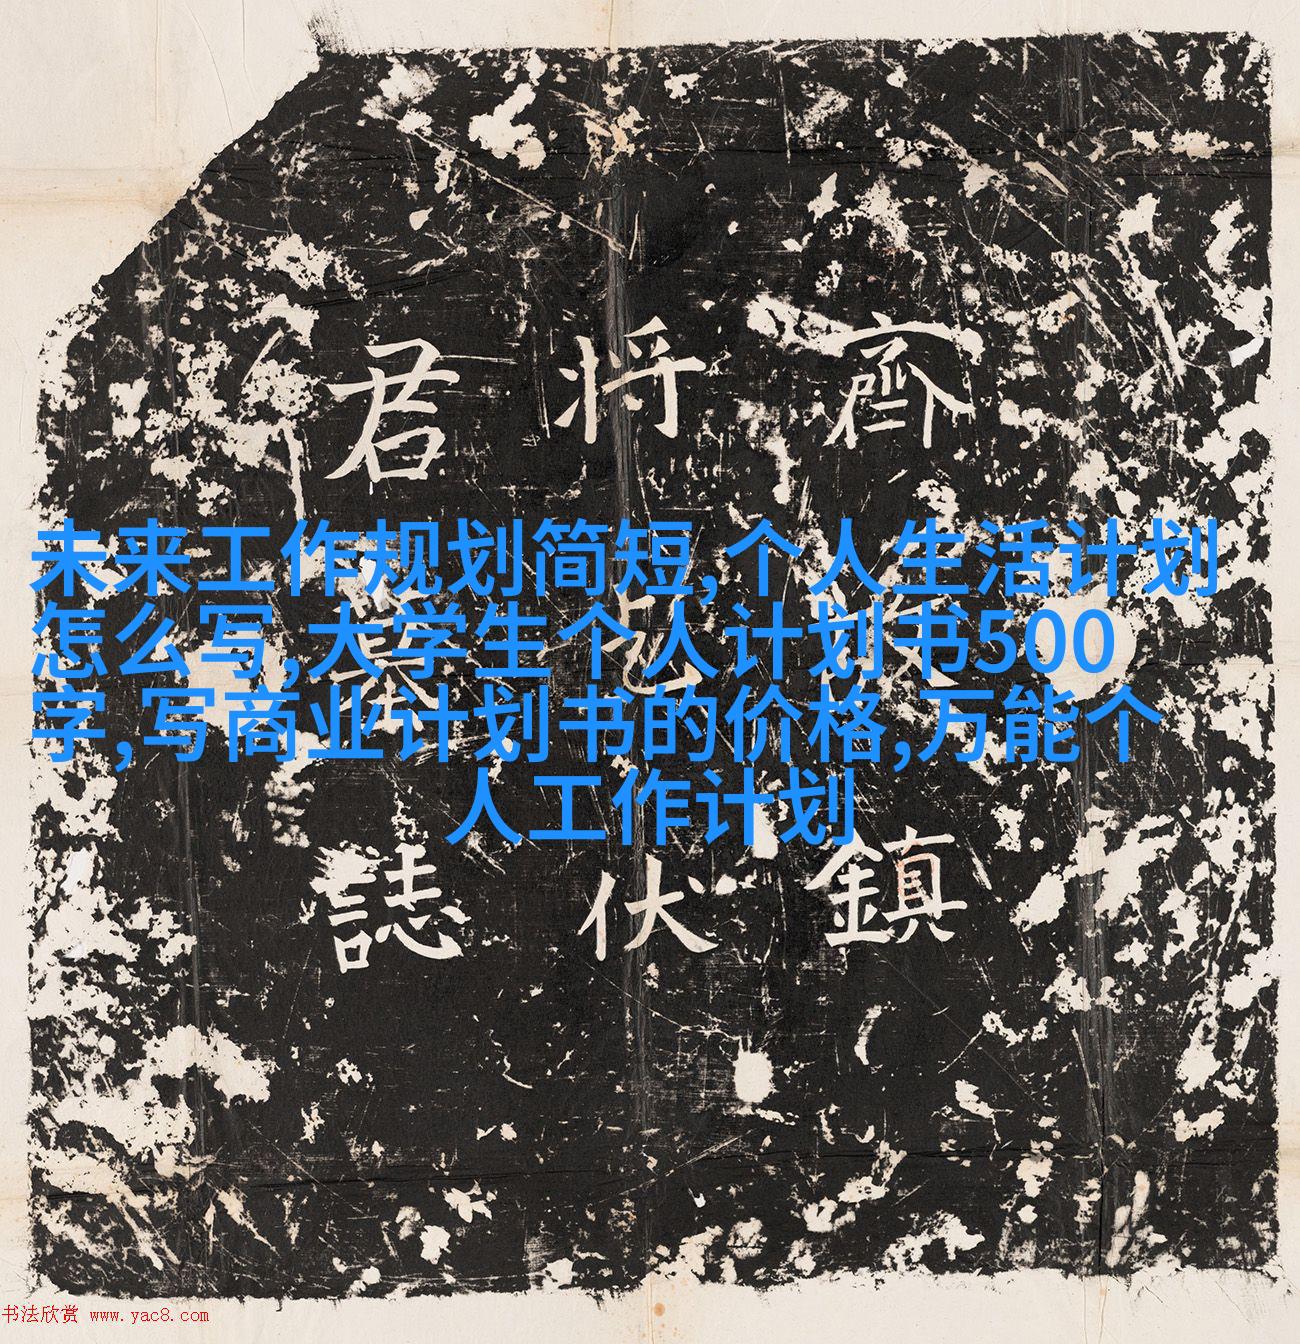 齊故鎮
将乞伏
君墓誌
未来工作规划简短,个人生活计划
怎么写,大学生个人计划书500
字,写商业计划书的价格,万能个
人工作计划
书法欣赏 www.yac8.com